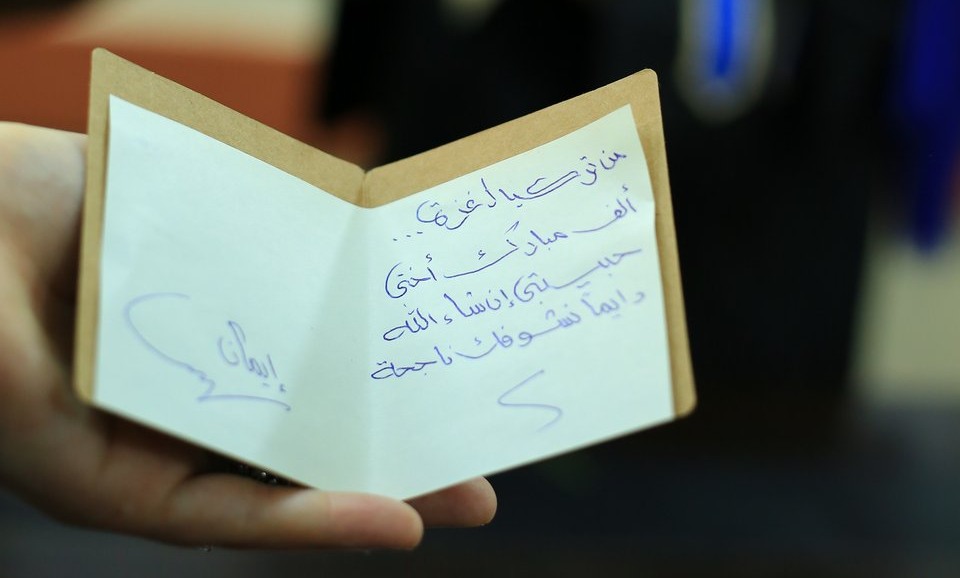 من تركيا لغزة...
ألف مبارك أختي
حبيبتي إن شاء الله
دايما نشوفك ناجحة
إيمان